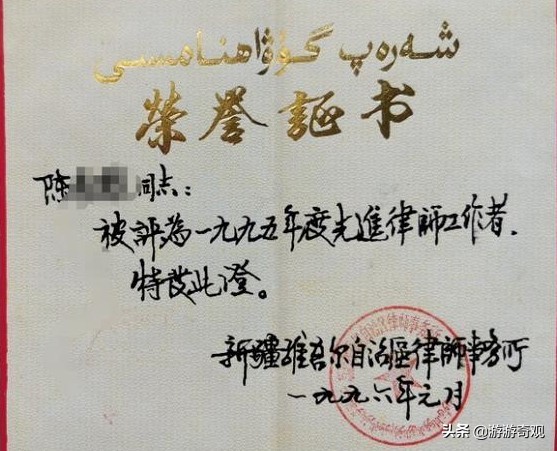 شەرەپ گۇۋاھنامىسى
榮譽証书
陈 同志：
被評為一九九五年度先進律師工作者，
特发此澄。
新疆維吾尔自治區律師事务所
一九九六年元月
头条 @游游奇观